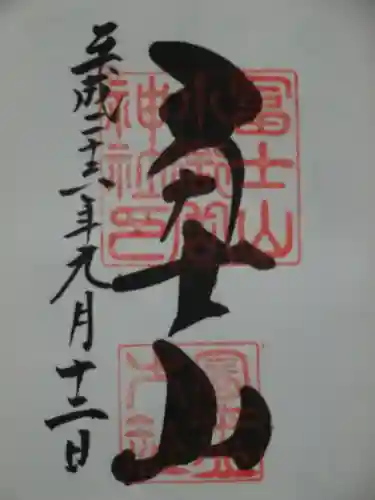 冨士山
小御嶽
神社印
冨士山
平成二十六年元月十三日